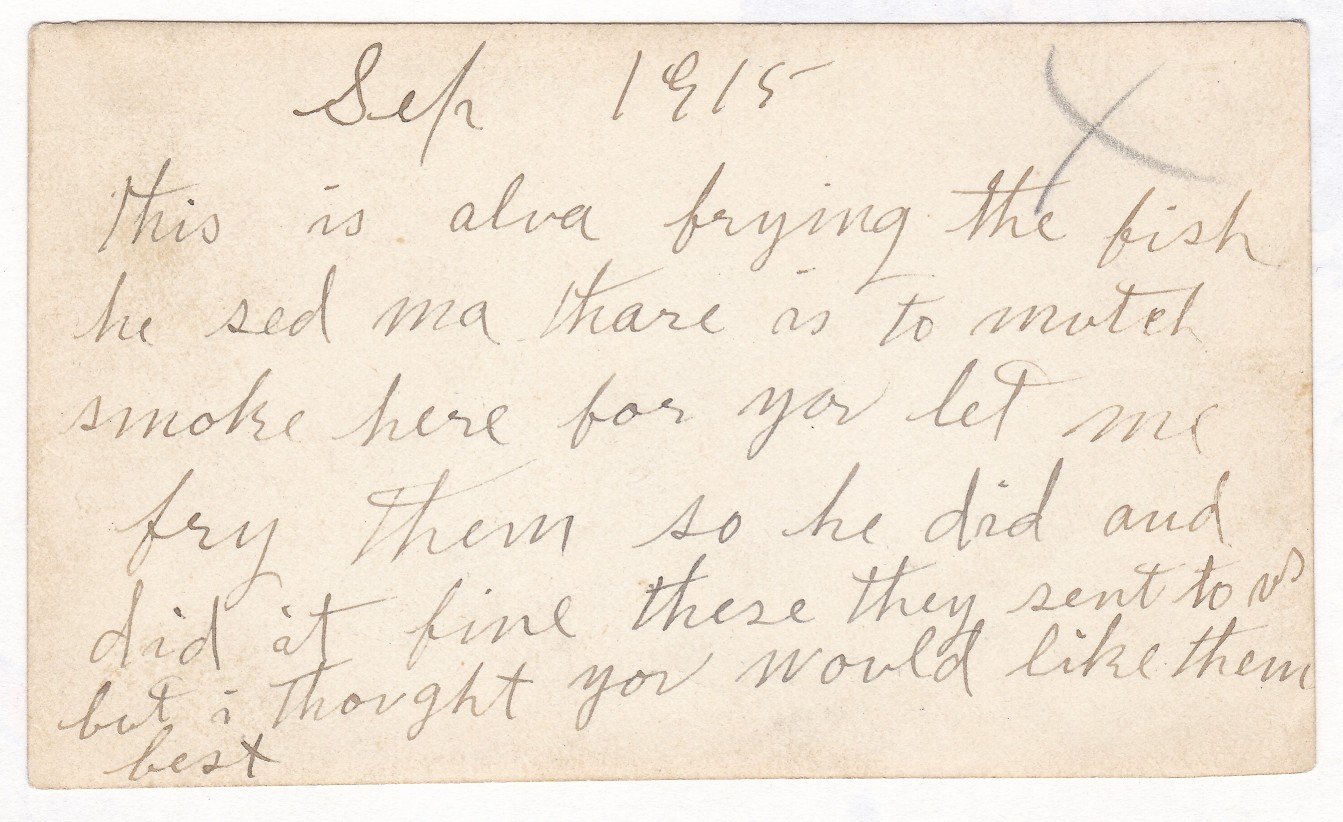 Sep 1915
this is alva frying the fish
he sed ma thare is to mutch
smoke here for you let me
fry them so he did and
did it fine these they sent to us
but i thought you would like them
best